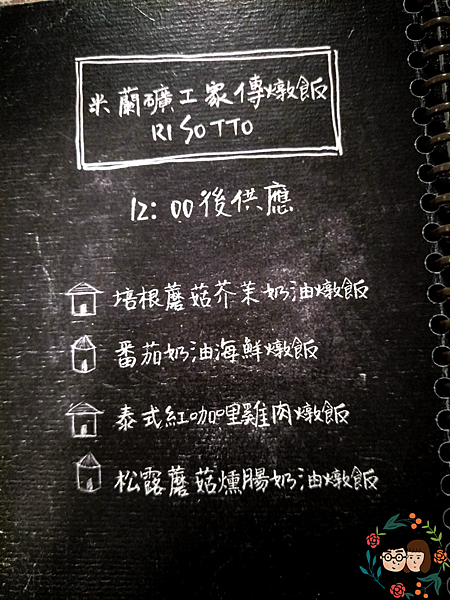 米蘭礦工家傳燉飯
RISOTTO
12:00後供應
培根蘑菇芥茉奶油燉飯
番茄奶油海鮮燉飯
泰式紅咖哩雞肉燉飯
松露蘑菇燻腸奶油燉飯